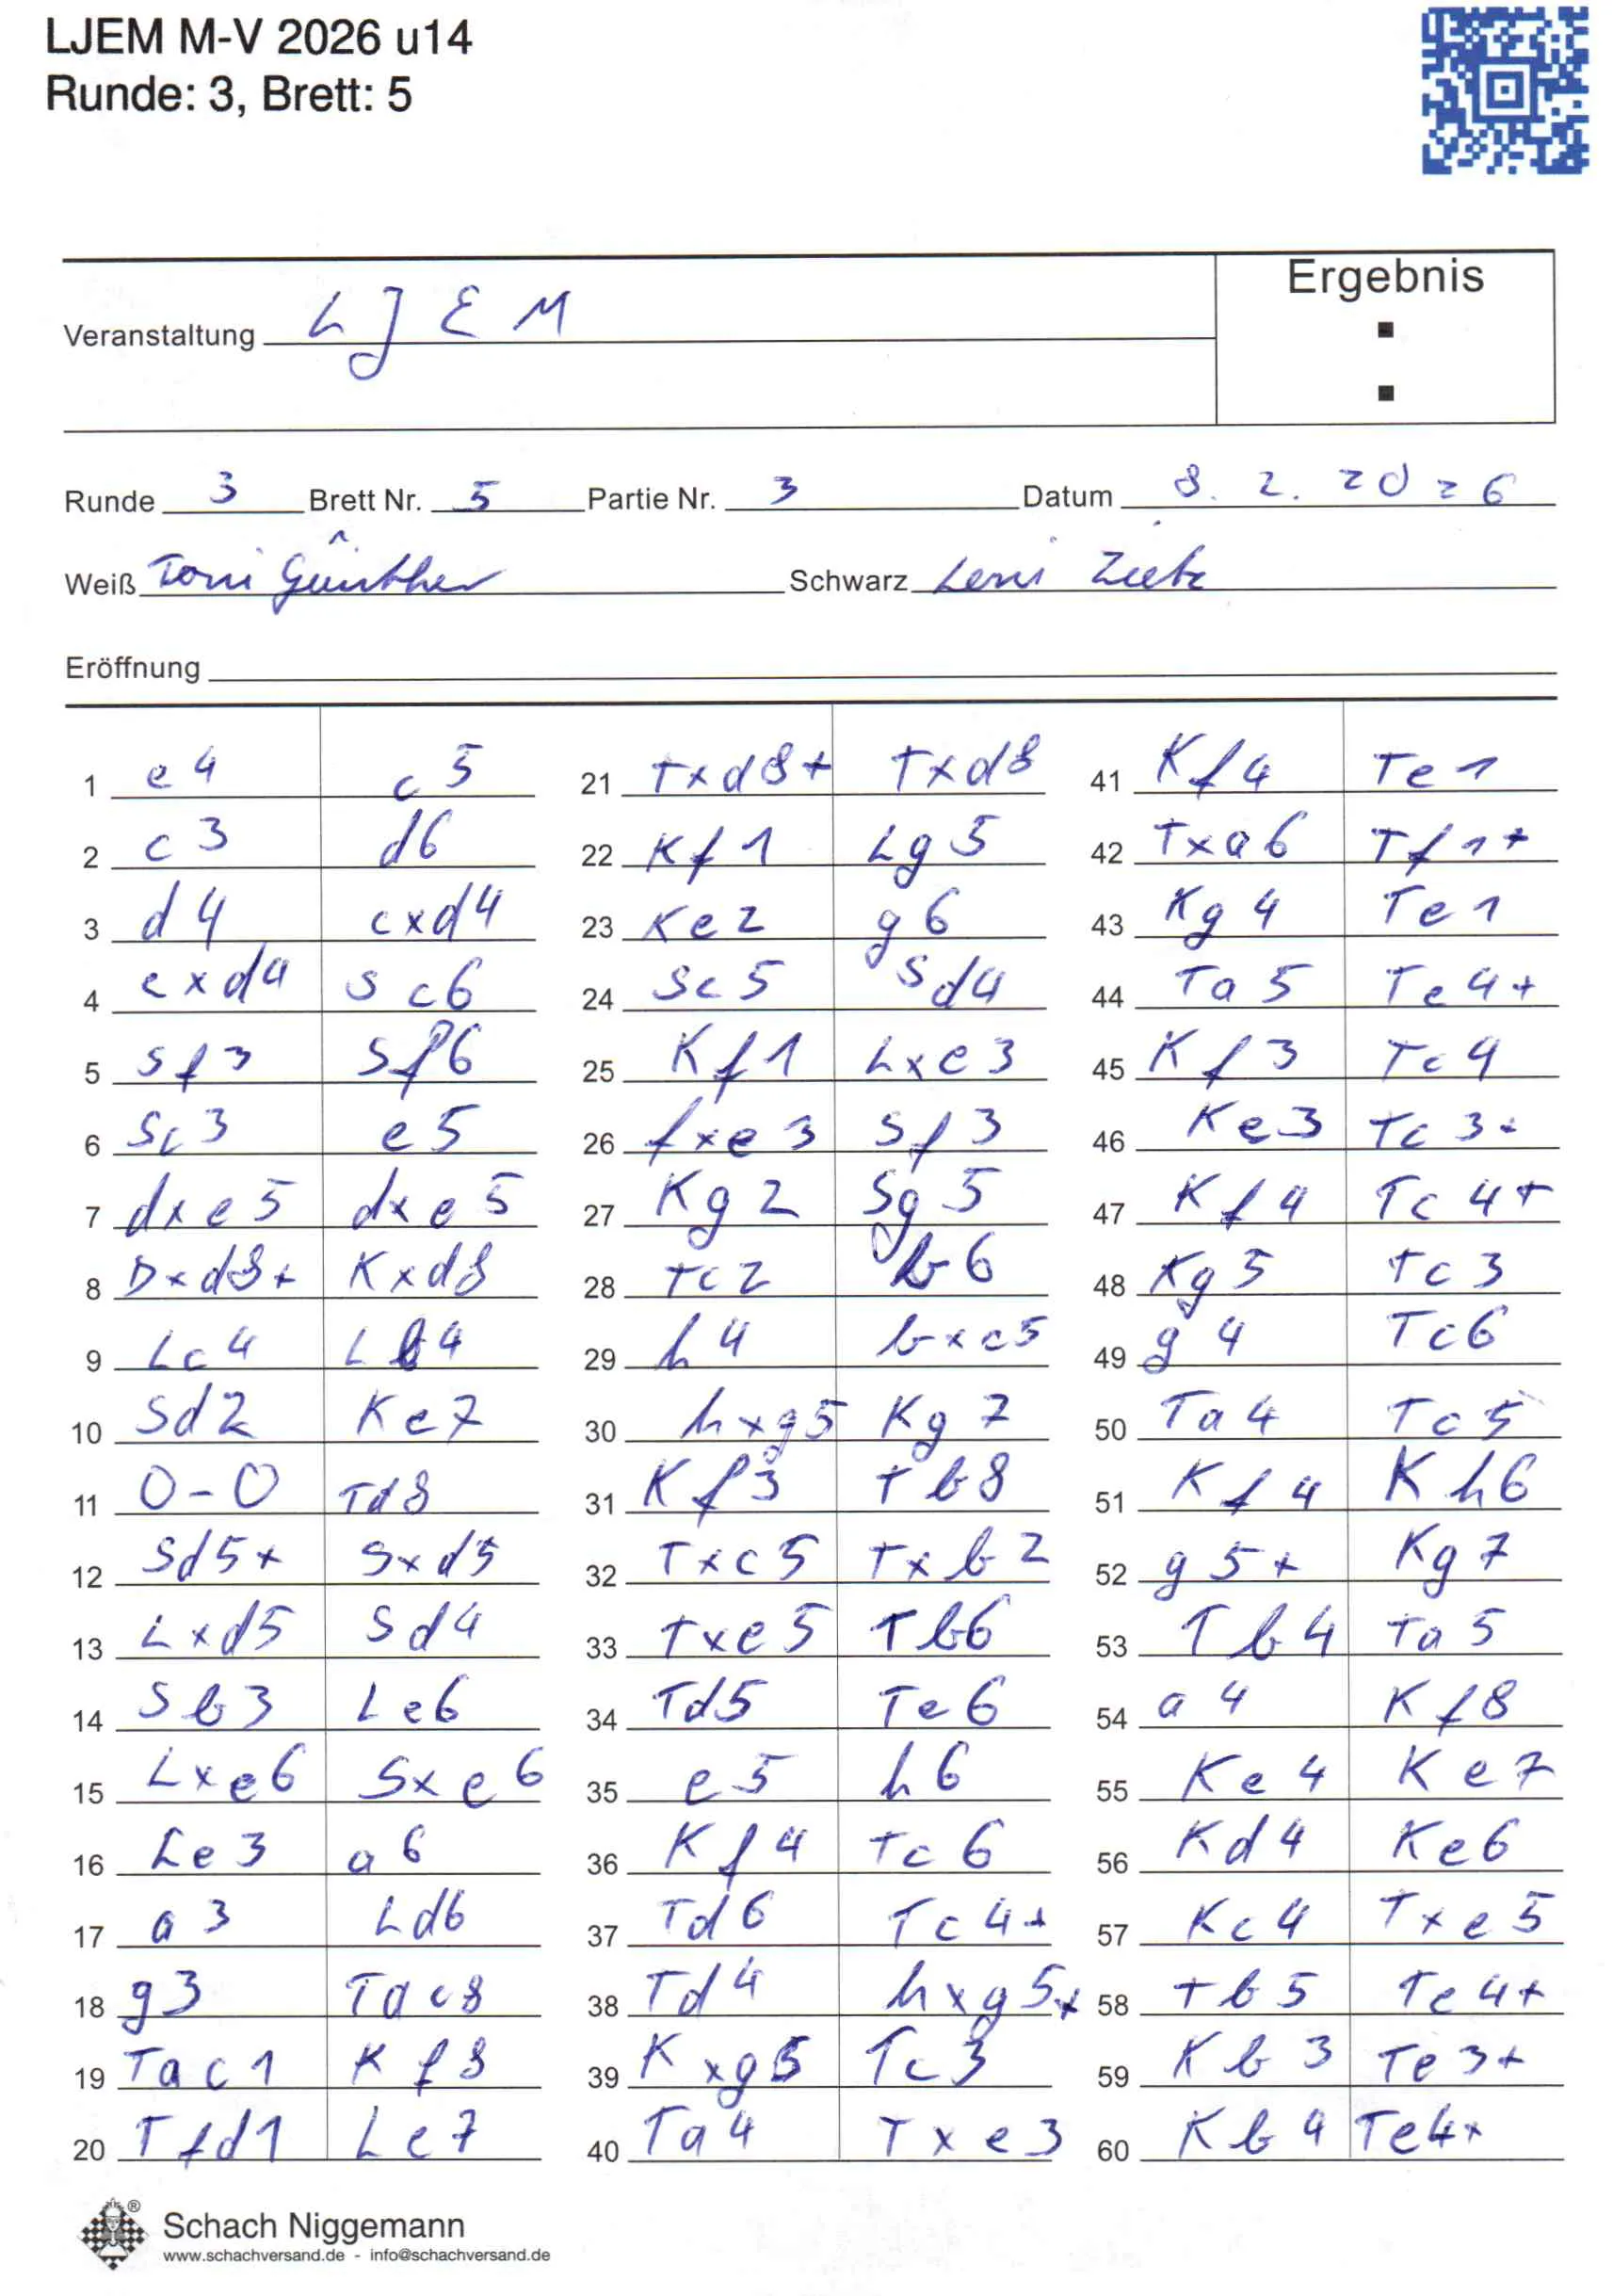 LJEM M-V 2026 u14
Runde: 3, Brett: 5
Ergebnis
Veranstaltung LJEM
Runde 3 Brett Nr. 5 Partie Nr. 3 Datum 8. 2. 2026
Weiß Toni Günther Schwarz Leni Zietz
Eröffnung
1 e4 c5
2 c3 d6
3 d4 cxd4
4 cxd4 Sc6
5 Sf3 Sf6
6 Sc3 e5
7 dxe5 dxe5
8 Dxd8+ Kxd8
9 Lc4 Lb4
10 Sd2 Ke7
11 0-0 Td8
12 Sd5+ Sxd5
13 Lxd5 Sd4
14 Sb3 Le6
15 Lxe6 Sxe6
16 Le3 a6
17 a3 Ld6
18 g3 Tac8
19 Tac1 Kf8
20 Tfd1 Le7
21 Txd8+ Txd8
22 Kf1 Lg5
23 Ke2 g6
24 Sc5 Sd4
25 Kf1 Lxe3
26 fxe3 Sf3
27 Kg2 Sg5
28 Tc2 b6
29 h4 bxc5
30 hxg5 Kg7
31 Kf3 Tb8
32 Txc5 Txb2
33 Txe5 Tb6
34 Td5 Te6
35 e5 h6
36 Kf4 Tc6
37 Td6 Tc4+
38 Td4 hxg5+
39 Kxg5 Tc3
40 Ta4 Txe3
41 Kf4 Te1
42 Txa6 Tf1+
43 Kg4 Te1
44 Ta5 Te4+
45 Kf3 Tc4
46 Ke3 Tc3+
47 Kf4 Tc4+
48 Kg5 Tc3
49 g4 Tc6
50 Ta4 Tc5
51 Kf4 Kh6
52 g5+ Kg7
53 Tb4 Ta5
54 a4 Kf8
55 Ke4 Ke7
56 Kd4 Ke6
57 Kc4 Txe5
58 Tb5 Te4+
59 Kb3 Te3+
60 Kb4 Te4+
Schach Niggemann
www.schachversand.de - info@schachversand.de